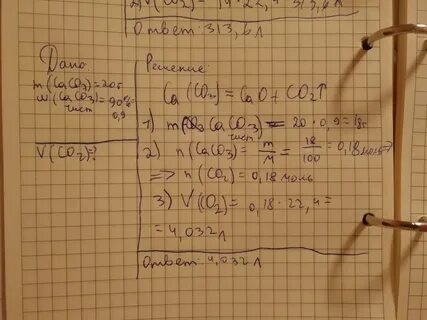 V(CO₂) = 14 · 22,4 = 313,6 л
Ответ: 313,6 л
Дано
m(CaCO3)=20г
w(CaCO3)=90%
чист 0,9
V(CO2)=?
Решение
Ca(CO3)=CaO+CO2↑
1) m(CaCO3)=20·0,9=18г
чист
2) n(CaCO3)=m/M=18/100=0,18моль
=> n(CO2)=0,18 моль
3) V(CO2)=0,18·22,4=
=4,032л
Ответ: 4,032л